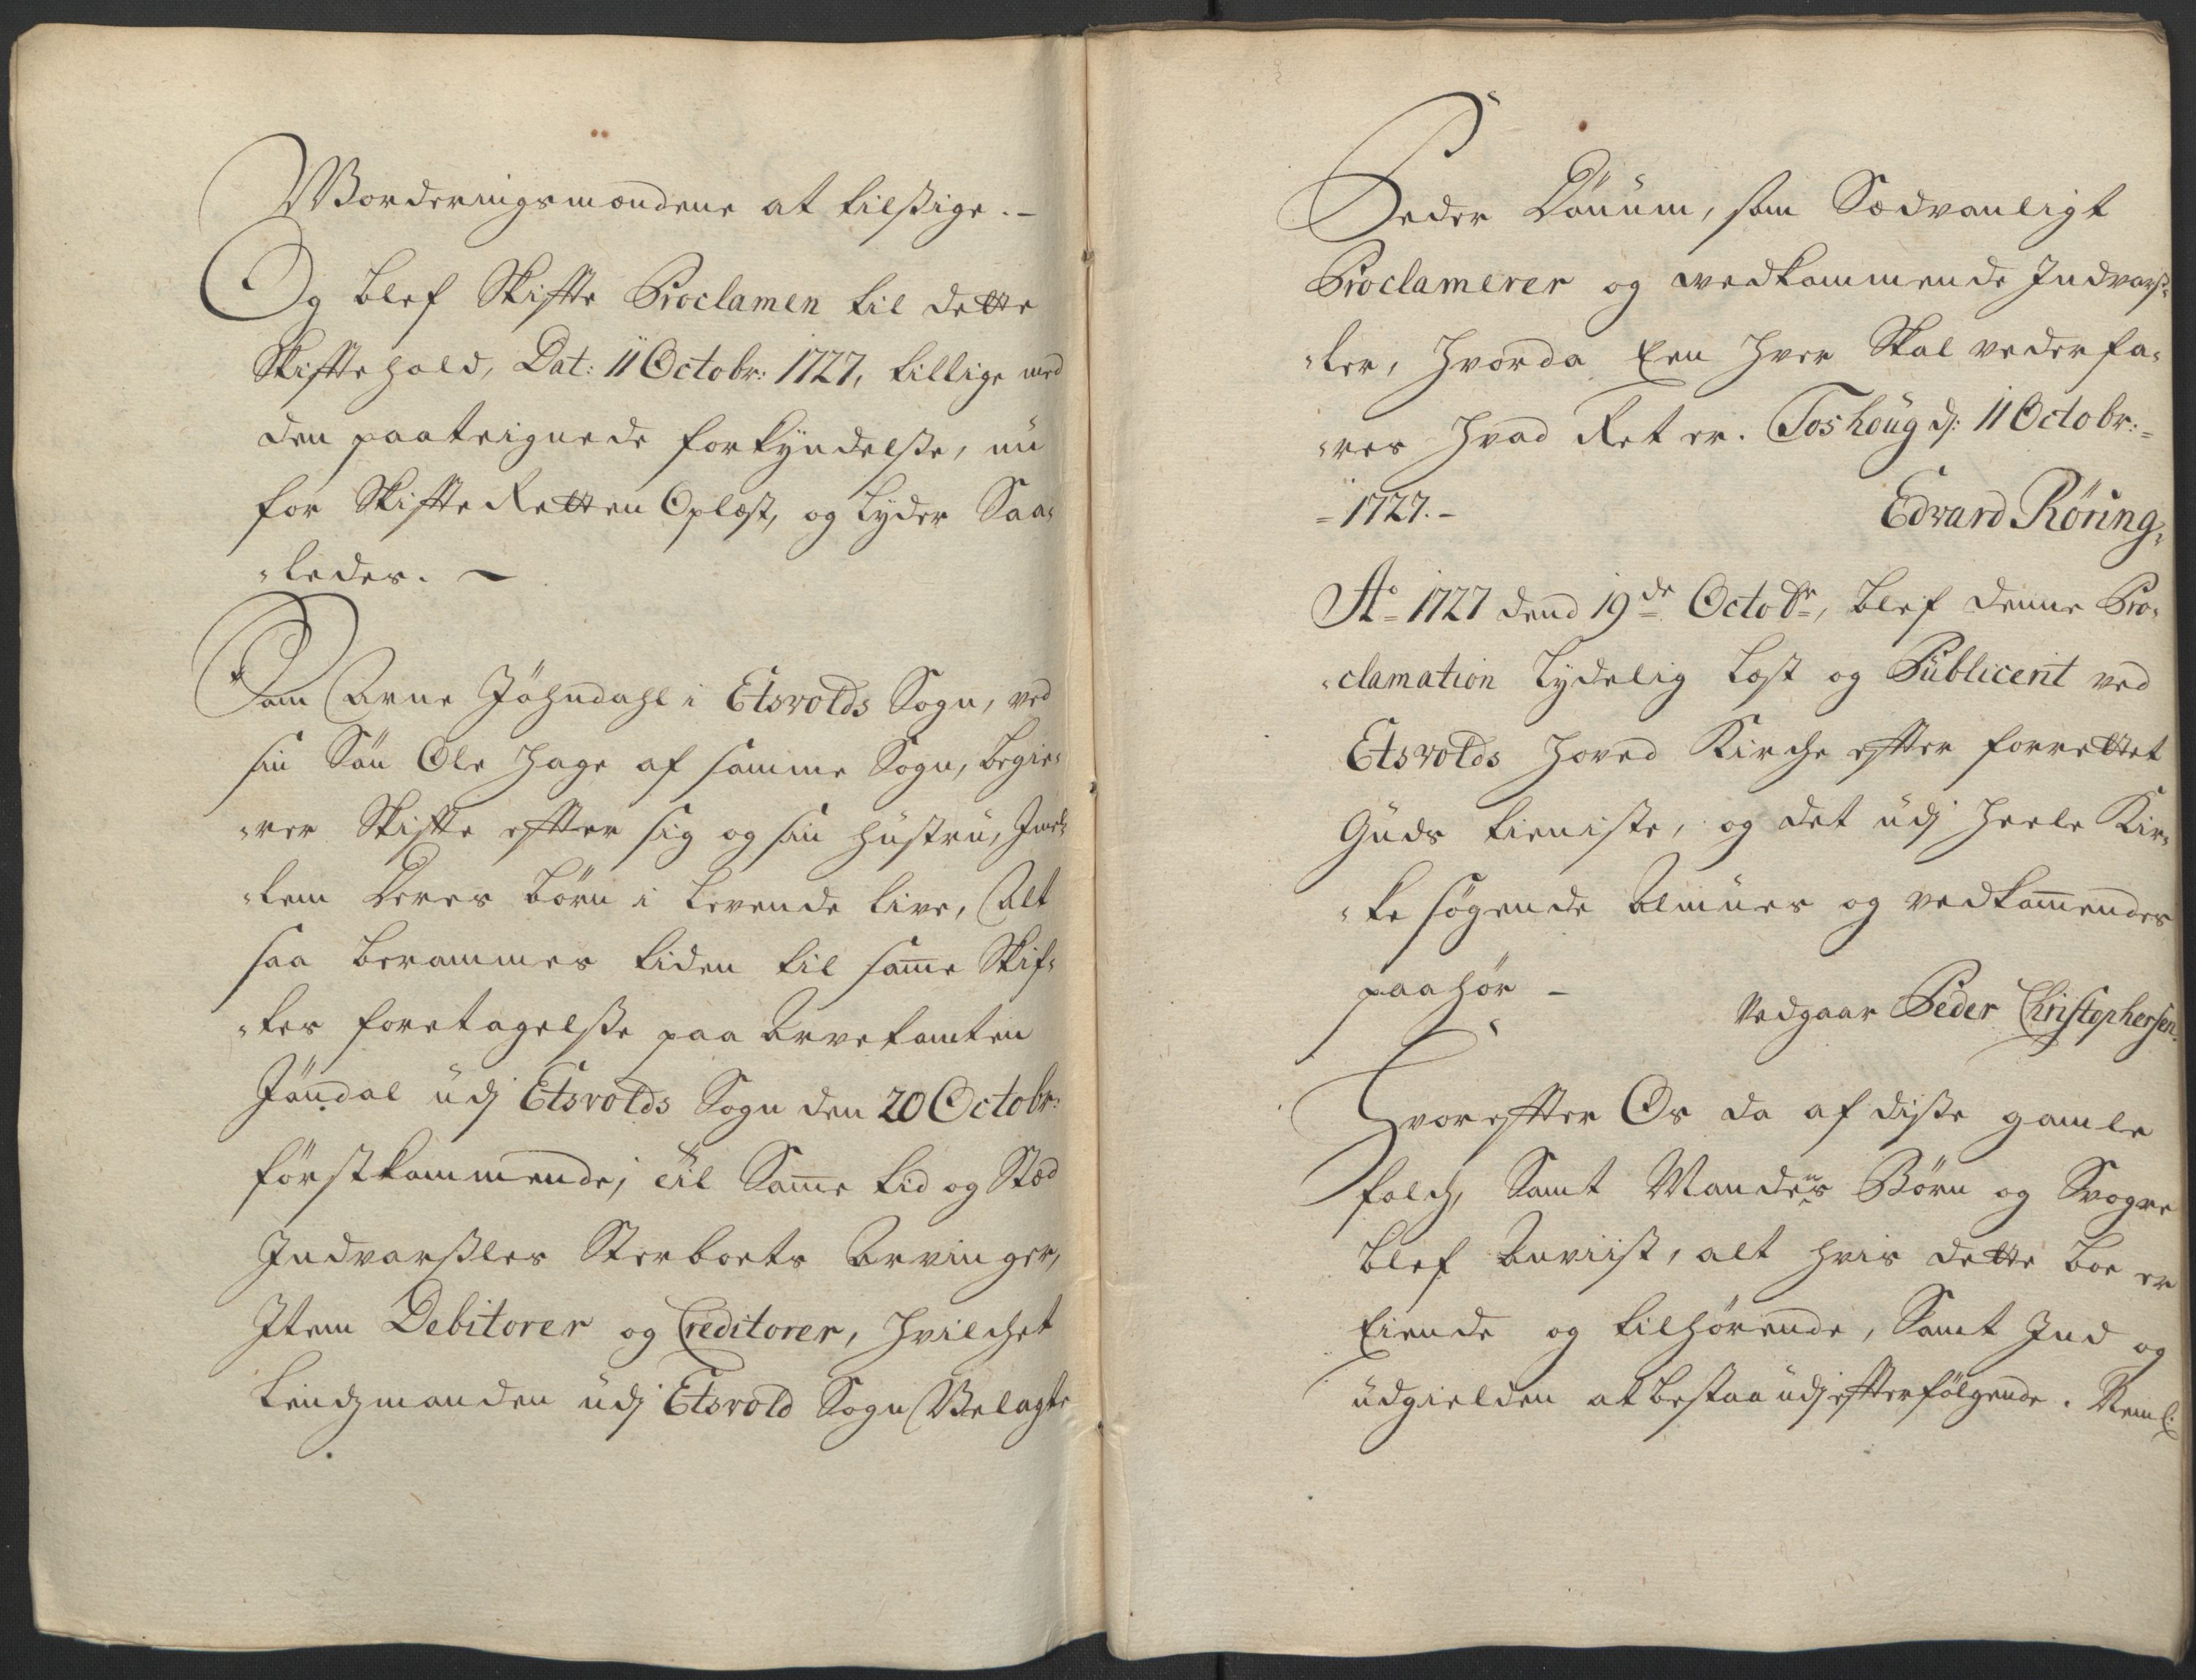 Worderingsmændene at tilßige.-
Og blef Skiffte Proclamen til dette
Skiffte hold, Dat: 11 Octobr: 1727, tillige med
den paateignede forkyndelße, nu
for Skiffte Retten Oplæst, og lyder Saa-
-ledes. -
Som Arne Jöhndahl i Etsvolds Sogn, ved
sin Sön Ole Hage af samme Sogn, begie-
-rer Skiffte effter sig og sin hustru, Imel-
-lem Deres börn i levende live, Alt
saa berammes tiden til same Skif-
-tes foretagelße paa Arvetomten
Jöndal udj Etsvolds Sogn den 20 Octobr:
förstkommende; till Same tid og Stæd
Indvarßles Sterboets Arvinger,
Item Debitorer og Creditorer, hvilchet
Lendzmanden udj Etsvold Sogn Velagte
Peder Lönüm, som Sædvanligt
Proclamerer og wedkommende Indvarß-
-ler, hvorda Een hver Skal vederfa-
-res hvad Ret er. Toshoug d: 11 Octobr:=
=1727.- Edvard Röring,
Ao 1727 dend 19de Octobr, blef denne Pro-
-clamation lydelig læst og Publicerit ved
Etsvolds Hoved Kirche effter forrettet
Guds tieniste, og det udj heele Kir-
-ke søgende Almues og vedkomendes
paahör -
Vedgaar Peder Christophersen.
Hvoreffter Os da af diße gamle
folch, Samt Mandens Börn og Svogre
blef Anviist, alt hvis dette boe er
Eiende og tilhörende, Samt Ind og
udgielden at bestaa udj effterfölgende. Neml: